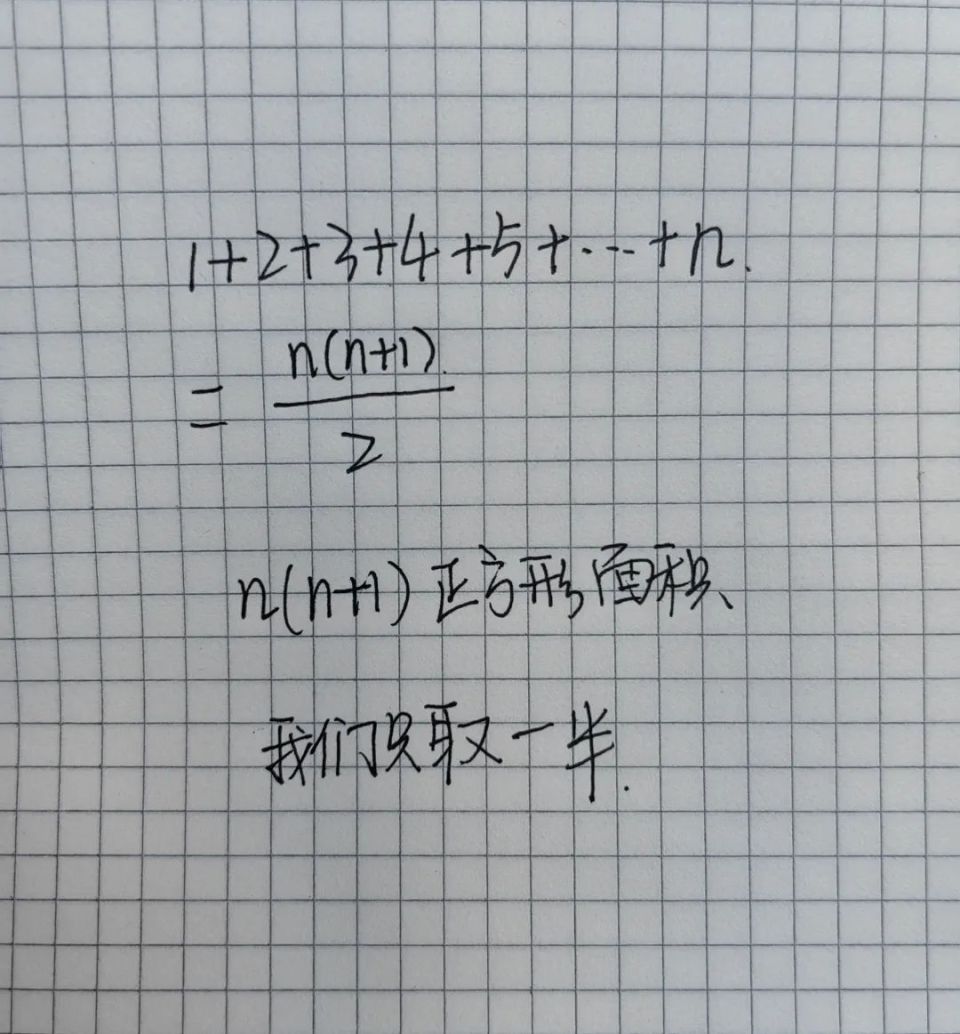 1+2+3+4+5+...+n.
= n(n+1)
2
n(n+1)正方形面积、
我们只取一半.